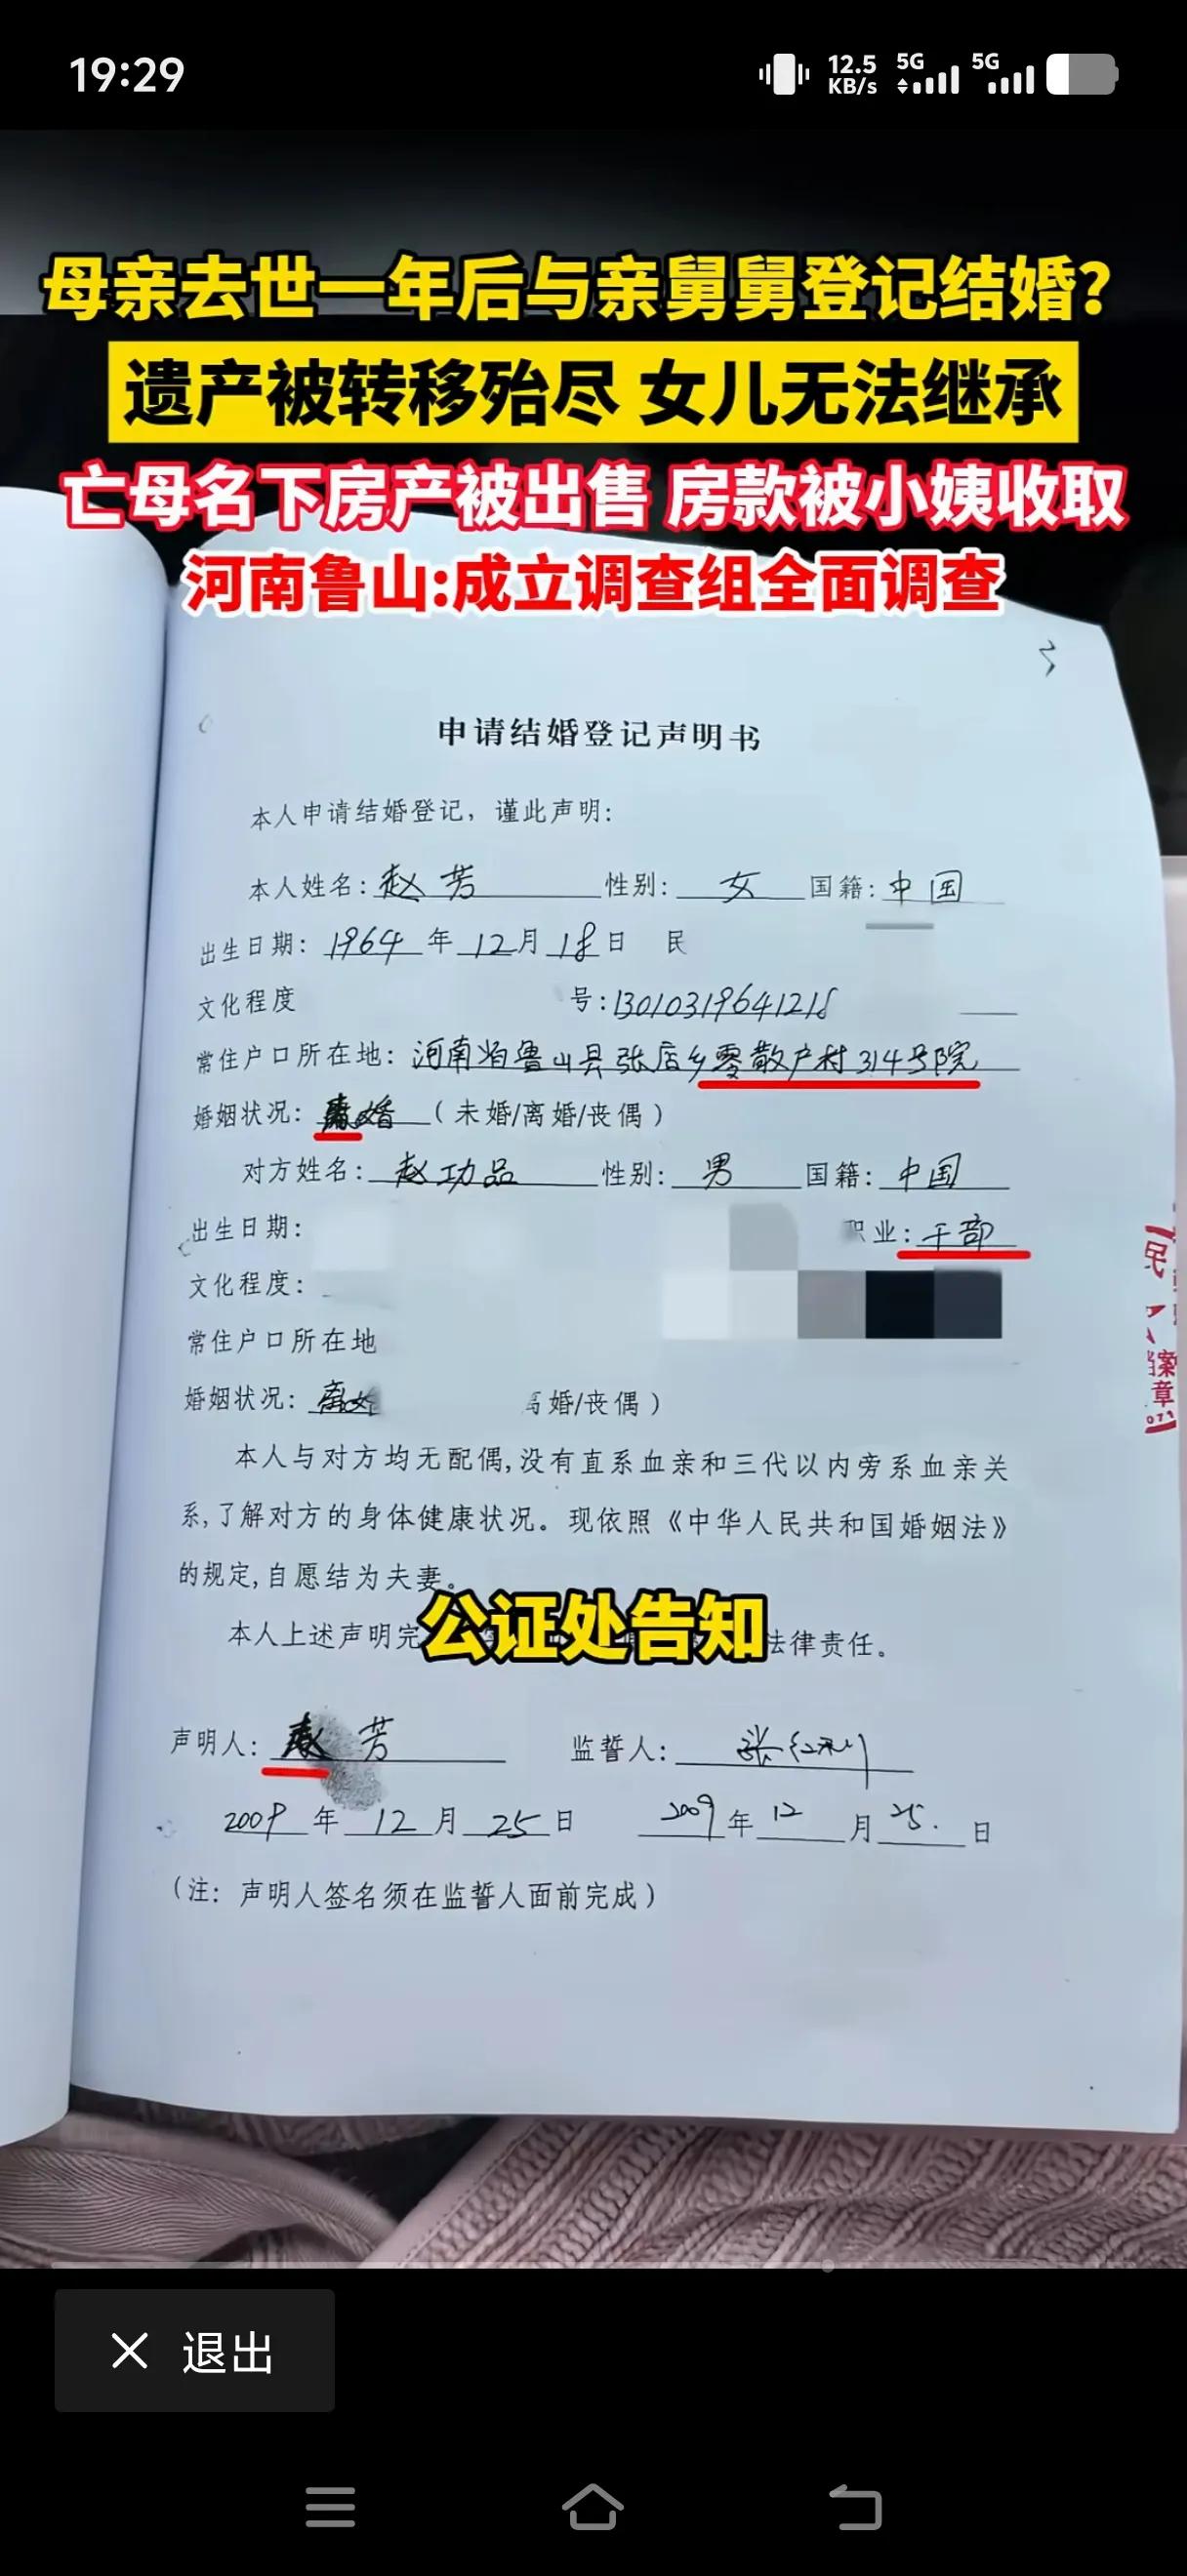 19:29
12.5 KB/s 5G 5G
母亲去世一年后与亲舅舅登记结婚?
遗产被转移殆尽 女儿无法继承
亡母名下房产被出售 房款被小姨收取
河南鲁山:成立调查组全面调查
3
申请结婚登记声明书
本人申请结婚登记，谨此声明:
本人姓名:赵芳 性别:女 国籍:中国
出生日期:1964年12月18日 民
文化程度 号:13010319641218
常住户口所在地:河南省鲁山县张店乡零散户村314号院
婚姻状况:离婚(未婚/离婚/丧偶)
对方姓名:赵功品 性别:男 国籍:中国
出生日期: 职业:干部
文化程度:
常住户口所在地
婚姻状况:离婚 离婚/丧偶)
本人与对方均无配偶,没有直系血亲和三代以内旁系血亲关
系,了解对方的身体健康状况。现依照《中华人民共和国婚姻法》
的规定,自愿结为夫妻。
本人上述声明完 法律责任。
公证处告知
声明人:赵芳 监誓人:张红利
2009年12月25日 2009年12月25日
(注:声明人签名须在监誓人面前完成)
民
档案
章
071
退出